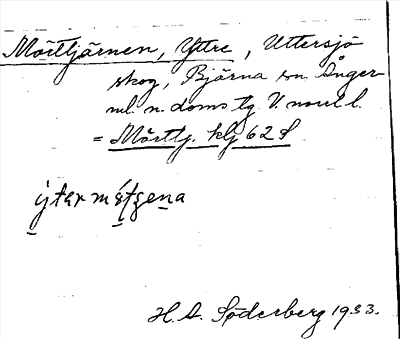 Mörttjärnen, Yttre, Uttersjö
skog, Björna sn. Ånger-
ml. n. doms tg V. norrl l.
= Mörttj. klj 62 S
ýtar mǽtʒena
H. A. Söderberg 1933.